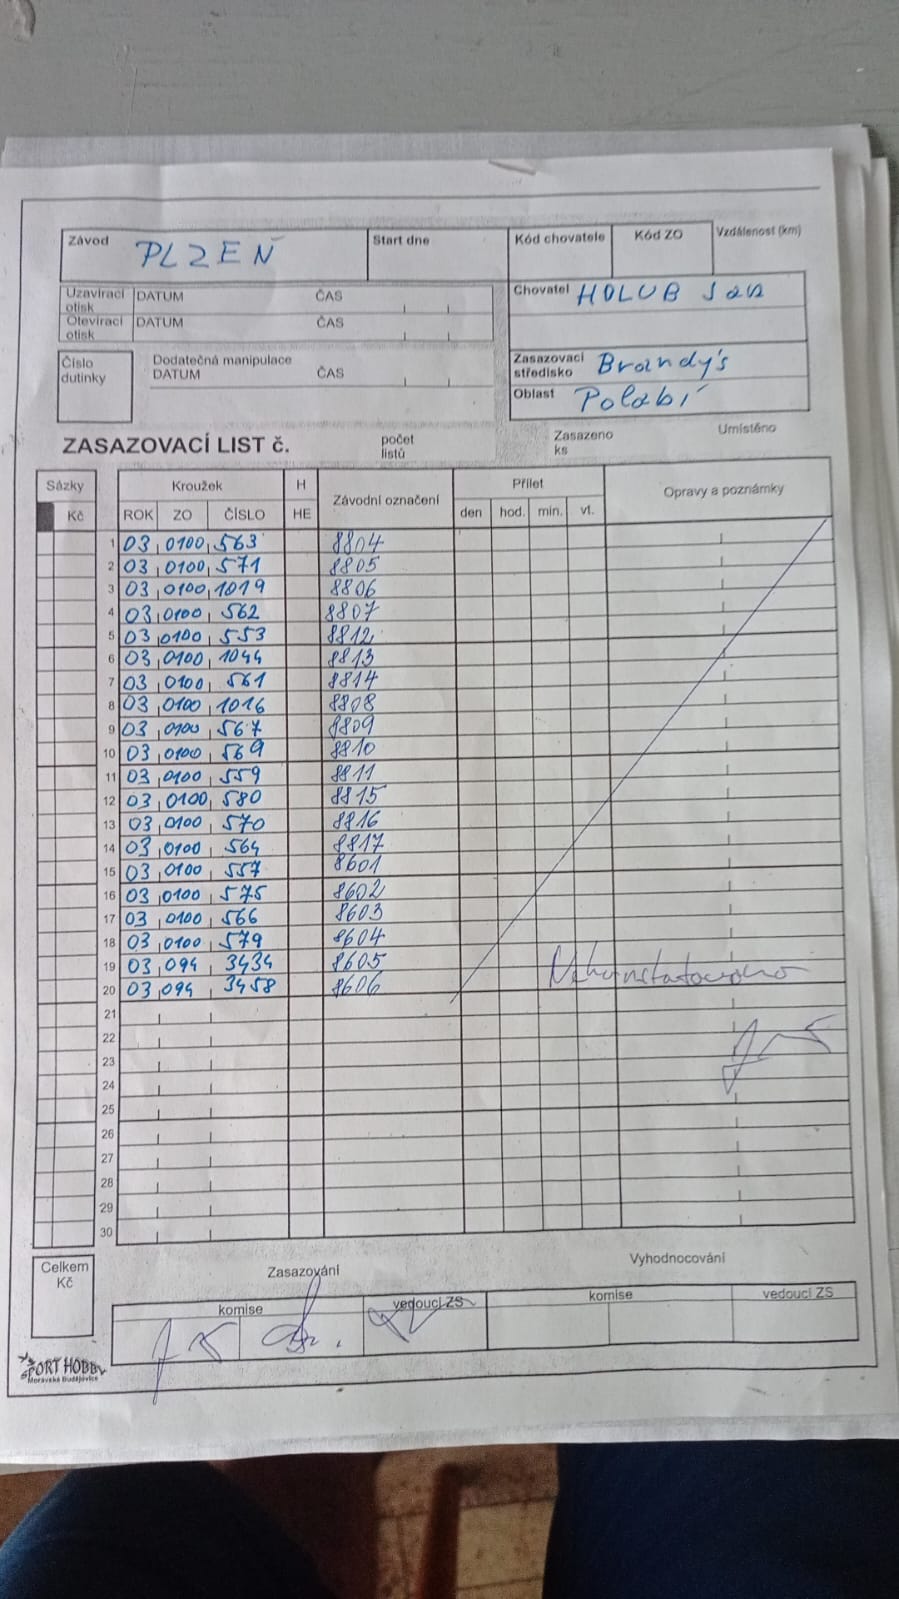 Závod PLZEŇ Start dne Kód chovatele Kód ZO Vzdálenost (km)
Uzavírací otisk DATUM ČAS
Otevírací otisk DATUM ČAS
Chovatel HOLUB Jan
Číslo dutinky Dodatečná manipulace
DATUM ČAS
Zasazovací středisko Brandýs
Oblast Polabí
ZASAZOVACÍ LIST č. počet listů Zasazeno ks Umístěno
Sázky Kroužek H Závodní označení Přílet Opravy a poznámky
Kč ROK ZO ČÍSLO HE den hod. min. vt.
1 03 0100 563 8804
2 03 0100 571 8805
3 03 0100 1019 8806
4 03 0100 562 8807
5 03 0100 553 8812
6 03 0100 1044 8813
7 03 0100 561 8814
8 03 0100 1016 8808
9 03 0100 567 8809
10 03 0100 569 8810
11 03 0100 559 8811
12 03 0100 580 8815
13 03 0100 570 8816
14 03 0100 564 8817
15 03 0100 557 8601
16 03 0100 575 8602
17 03 0100 566 8603
18 03 0100 579 8604
19 03 094 3434 8605
20 03 094 3458 8606
21
22
23
24
25
26
27
28
29
30
Celkem Kč
Zasazování Vyhodnocování
komise vedoucí ZS komise vedoucí ZS
SPORT HOBBY
Moravské Budějovice